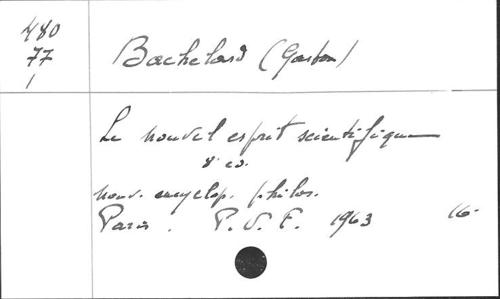 480
77
1
Bachelard (Gaston)
Le nouvel esprit scientifique
8° éd.
nouv. encyclop. philos.
Paris. P.U.F. 1963 16-